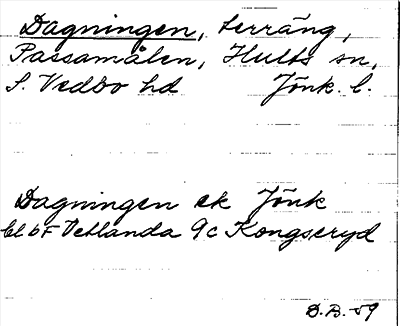 Dagningen, terräng,
Passamålen, Hults sn,
S. Vedbo hd Jönk. l.
Dagningen ek Jönk
bl 6F Vetlanda 9c Kongseryd
D.B. -59